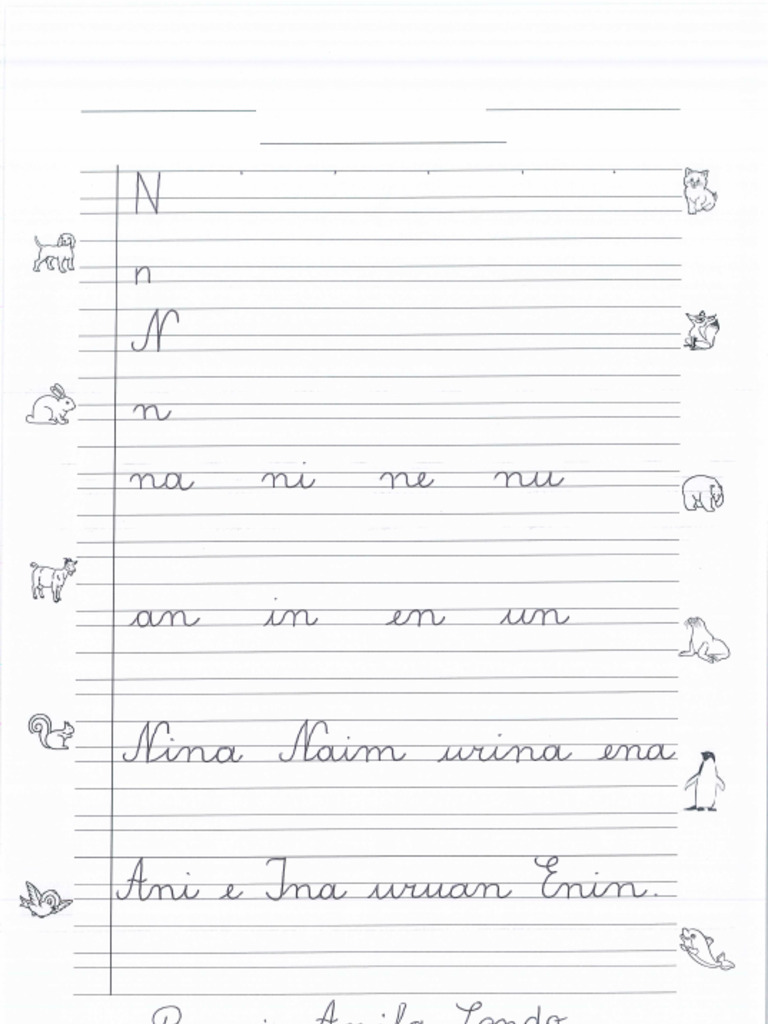 N
n
N
n
na ni ne nu
an in en un
Nina Naim urina ena
Ani e Ina uruan Enin.